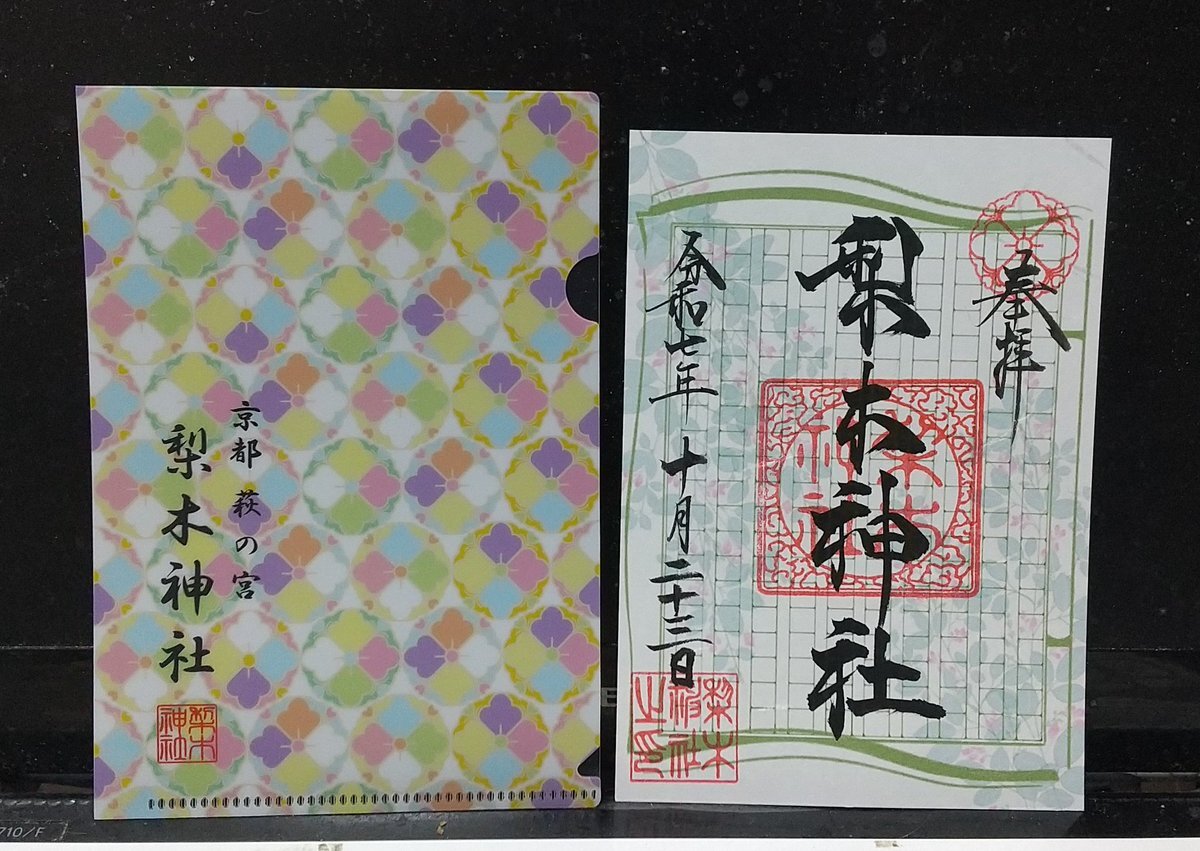 京都 萩の宮
梨木神社
梨木
神社
奉拝
梨木神社
令和七年 十月二十三日
梨木
神社
之印
710/F